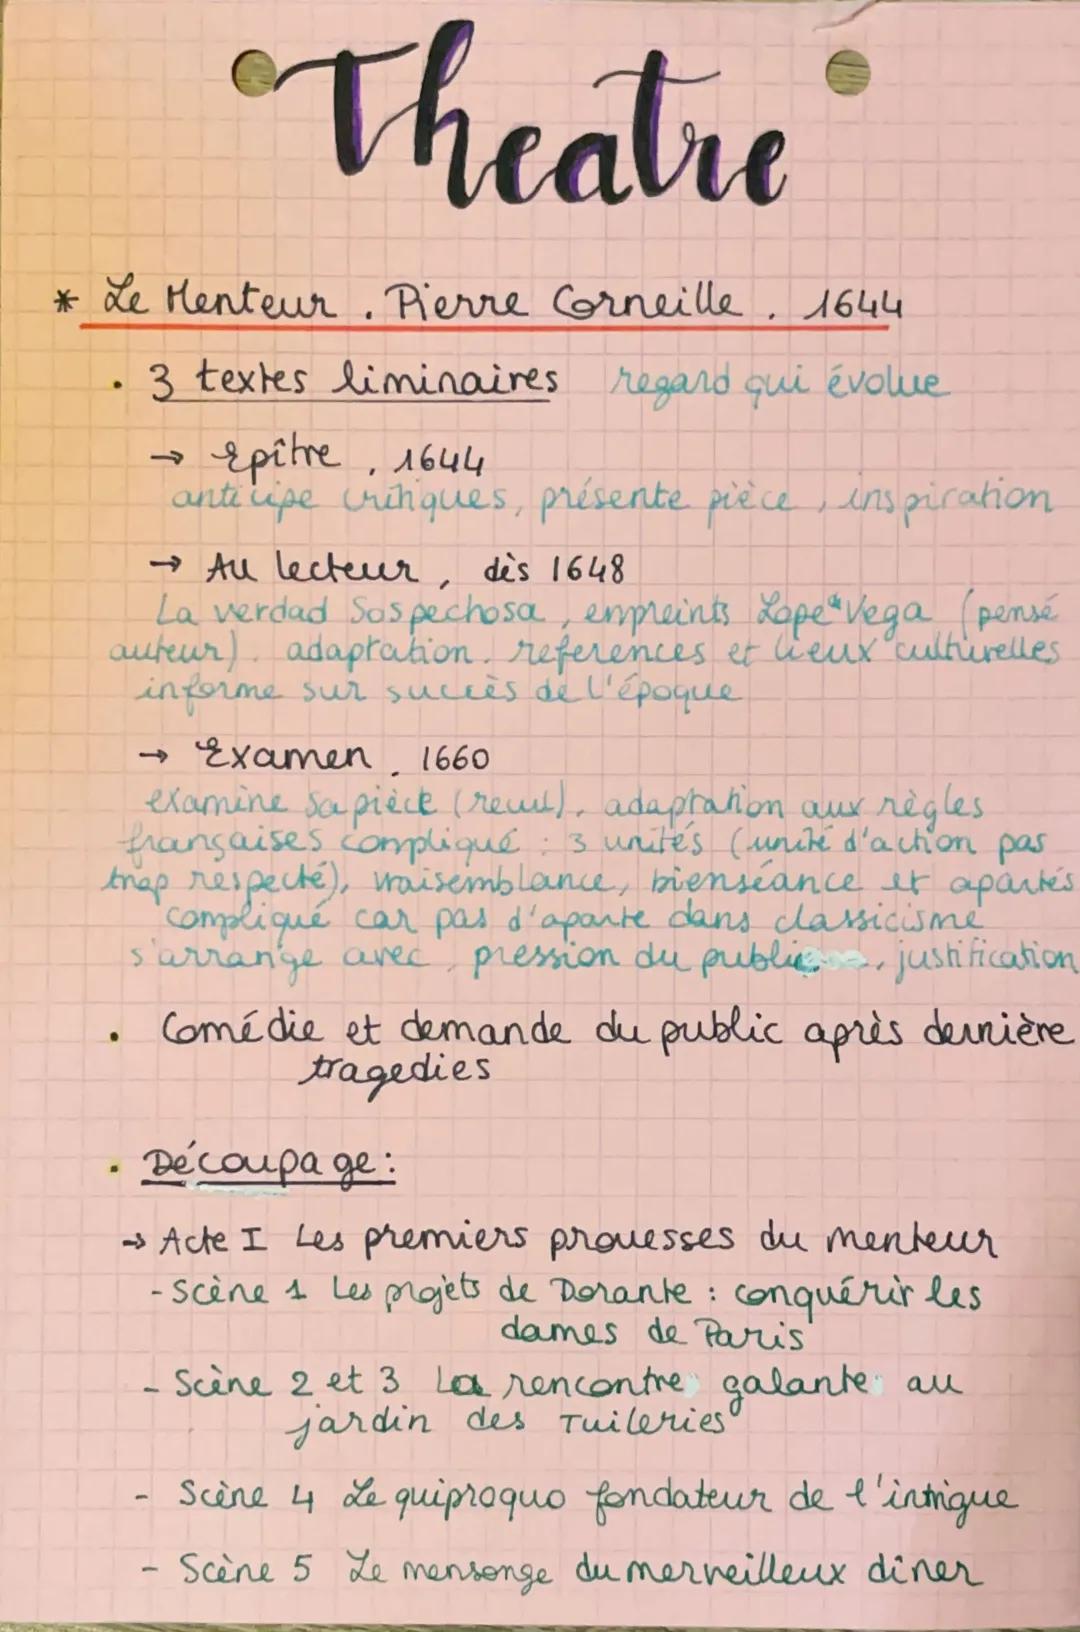 Theatre
* Le Menteur . Pierre Corneille . 1644
• 3 textes liminaires regard qui évolue
→ Epître , 1644
anticipe critiques, présente pièce, inspiration
→ Au lecteur, dès 1648
La verdad Sospechosa, empreints Lope de Vega (pensé
auteur). adaptation. references et lieux culturelles
informe sur succès de l'époque
→ Examen . 1660
examine sa pièce (recul), adaptation aux règles
françaises compliqué : 3 unités (unité d'action pas
trop respecté), vraisemblance, bienséance et apartés
compliqué car pas d'aparte dans classicisme
s'arrange avec, pression du public, justification
• Comédie et demande du public après dernière
tragedies
• Découpage :
→ Acte I Les premiers prouesses du menteur
- Scène 1 Les projets de Dorante : conquérir les
dames de Paris
- Scène 2 et 3 La rencontre galante au
jardin des Tuileries
- Scène 4 Le quiproquo fondateur de l'intrigue
- Scène 5 Le mensonge du merveilleux diner